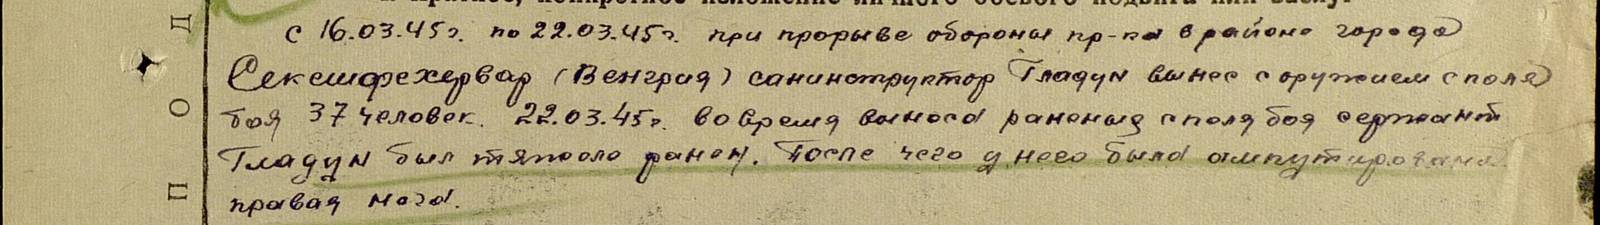 конкретное изложение личного боевого подвига или заслуг
с 16.03.45г. по 22.03.45г. при прорыве обороны пр-ка в районе города
Секешфехервар (Венгрия) санинструктор Гладун вынес с оружием с поля
боя 37 человек. 22.03.45г. во время выноса раненых с поля боя сержант
Гладун был тяжело ранен. После чего у него была ампутирована
правая нога.
ПОД